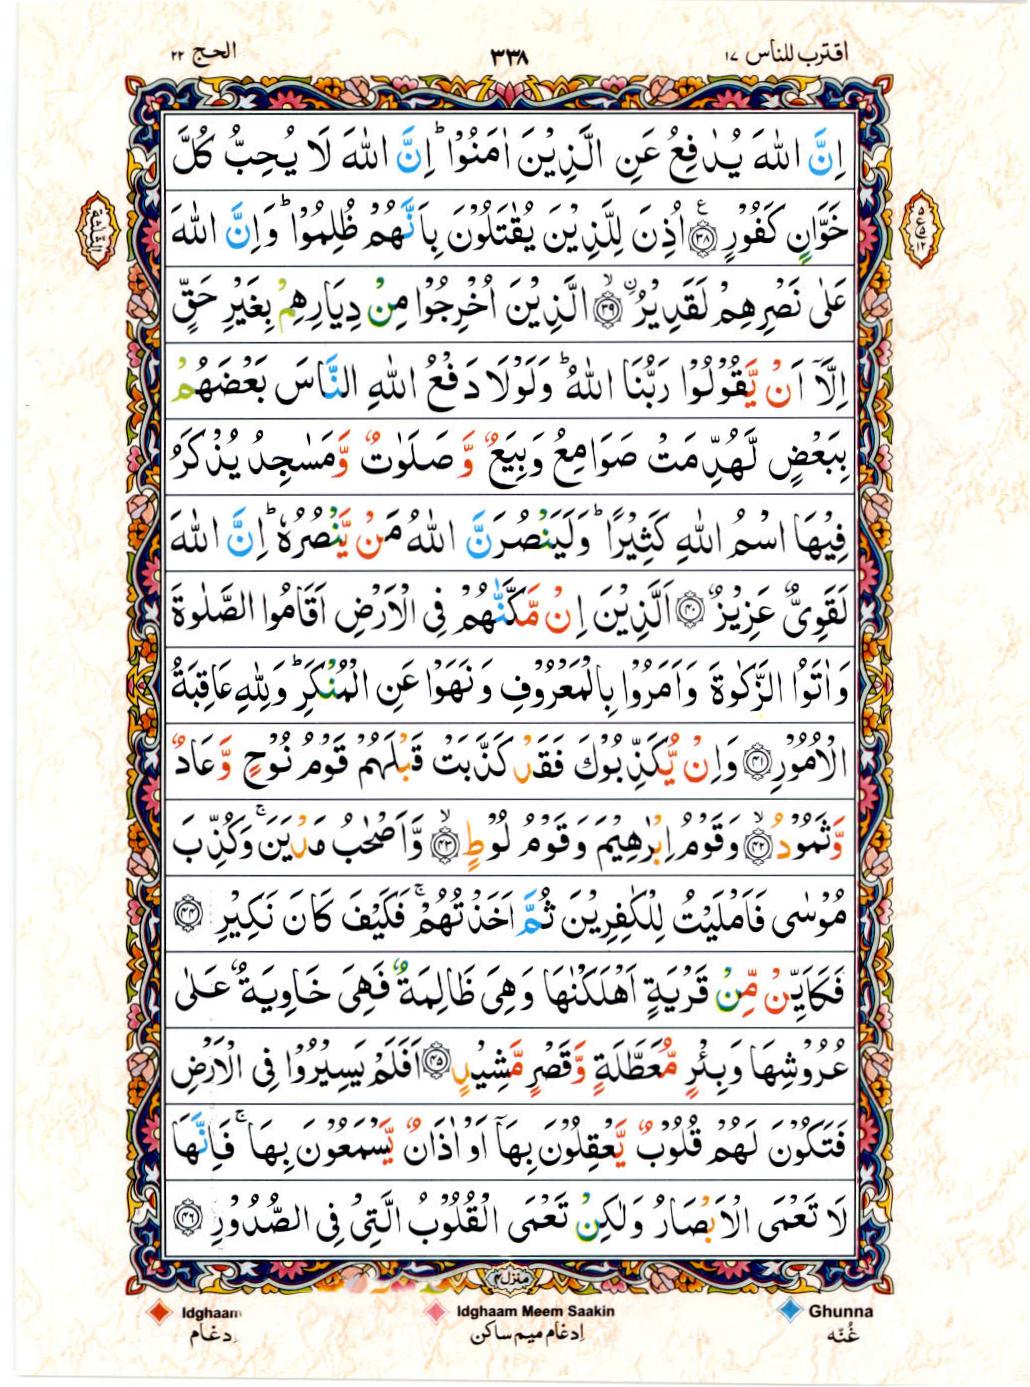 اقترب للناس ١٧
٣٣٨
الحج ٢٢
اِنَّ اللّٰهَ يُدٰفِعُ عَنِ الَّذِيْنَ اٰمَنُوْا ؕ اِنَّ اللّٰهَ لَا يُحِبُّ كُلَّ
خَوَّانٍ كَفُوْرٍ ﴿٣٨﴾ اُذِنَ لِلَّذِيْنَ يُقٰتَلُوْنَ بِاَنَّهُمْ ظُلِمُوْا ؕ وَاِنَّ اللّٰهَ
عَلٰى نَصْرِهِمْ لَقَدِيْرُ ۨ ﴿٣٩﴾ ۙ الَّذِيْنَ اُخْرِجُوْا مِنْ دِيَارِهِمْ بِغَيْرِ حَقٍّ
اِلَّاۤ اَنْ يَّقُوْلُوْا رَبُّنَا اللّٰهُ ؕ وَلَوْلَا دَفْعُ اللّٰهِ النَّاسَ بَعْضَهُمْ
بِبَعْضٍ لَّهُدِّمَتْ صَوَامِعُ وَبِيَعٌ وَّ صَلَوٰتٌ وَّمَسٰجِدُ يُذْكَرُ
فِيْهَا اسْمُ اللّٰهِ كَثِيْرًا ؕ وَلَيَنْصُرَنَّ اللّٰهُ مَنْ يَّنْصُرُهٗ ؕ اِنَّ اللّٰهَ
لَقَوِىٌّ عَزِيْزٌ ﴿٤٠﴾ اَلَّذِيْنَ اِنْ مَّكَّنّٰهُمْ فِى الْاَرْضِ اَقَامُوا الصَّلٰوةَ
وَاٰتَوُا الزَّكٰوةَ وَاَمَرُوْا بِالْمَعْرُوْفِ وَنَهَوْا عَنِ الْمُنْكَرِ ؕ وَلِلّٰهِ عَاقِبَةُ
الْاُمُوْرِ ﴿٤١﴾ وَاِنْ يُّكَذِّبُوْكَ فَقَدْ كَذَّبَتْ قَبْلَهُمْ قَوْمُ نُوْحٍ وَّعَادٌ
وَّثَمُوْدُ ﴿٤٢﴾ ۙ وَقَوْمُ اِبْرٰهِيْمَ وَقَوْمُ لُوْطٍ ﴿٤٣﴾ ۙ وَّاَصْحٰبُ مَدْيَنَ ۚ وَكُذِّبَ
مُوْسٰى فَاَمْلَيْتُ لِلْكٰفِرِيْنَ ثُمَّ اَخَذْتُهُمْ ۚ فَكَيْفَ كَانَ نَكِيْرِ ﴿٤٤﴾
فَكَاَيِّنْ مِّنْ قَرْيَةٍ اَهْلَكْنٰهَا وَهِىَ ظَالِمَةٌ فَهِىَ خَاوِيَةٌ عَلٰى
عُرُوْشِهَا وَبِئْرٍ مُّعَطَّلَةٍ وَّقَصْرٍ مَّشِيْدٍ ﴿٤٥﴾ اَفَلَمْ يَسِيْرُوْا فِى الْاَرْضِ
فَتَكُوْنَ لَهُمْ قُلُوْبٌ يَّعْقِلُوْنَ بِهَاۤ اَوْ اٰذَانٌ يَّسْمَعُوْنَ بِهَا ۚ فَاِنَّهَا
لَا تَعْمَى الْاَبْصَارُ وَلٰكِنْ تَعْمَى الْقُلُوْبُ الَّتِىْ فِى الصُّدُوْرِ ﴿٤٦﴾
منزل ٤
Idghaam
Idghaam Meem Saakin
Ghunna
اِدغام
اِدغام ميم ساكن
غُنّه